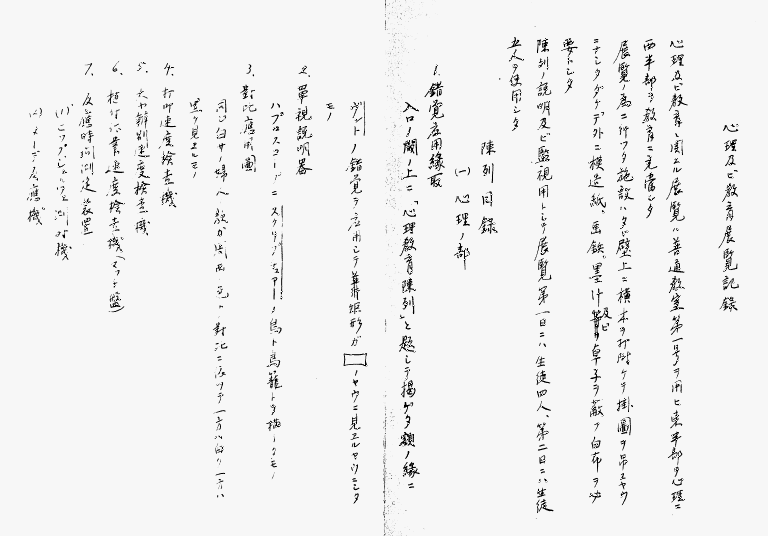 心理及ビ教育展覧記録
心理及ビ教育ニ関スル展覧ハ普通教室第一号ヲ用ヒ東半部ヲ心理ニ
西半部ヲ教育ニ充当シタ
展覧ノ為ニ行ツタ施設ハタヾ壁上ニ横木ヲ打附ケテ掛圖ヲ吊スヤウ
ニナシタダケデ外ニ模造紙、画鋲、墨汁及ビ卓子ヲ蔽フ白布ヲ必
要トシタ
陳列ノ説明及ビ監視用トシテ展覧第一日ニハ生徒四人、第二日ニハ生徒
五人ヲ使用シタ
陳列目録
(一) 心理ノ部
1. 錯覚応用縁取
入口ノ閾ノ上ニ「心理教育陳列」ト題シテ掲ゲタ額ノ縁ニ
ヴントノ錯覚ヲ応用シテ長方矩形ガ ノヤウニ見エルヤウニシタ
モノ
2. 單視説明器
ハプロスコープニ ノ鳥ト鳥籠トヲ描イタモノ
3. 對比應用圖
同ジ白サノ場ヘ ガ周囲ノ色ト對比ニ依ツテ一方ハ白ク一方ハ
黒ク見エルモノ
4. 打叩速度検査機
5. 大サ辨別速度検査機
6. 速度検査機
7. 反應時間測定装置
(1) ヒップ 測時機
(2) 反應機